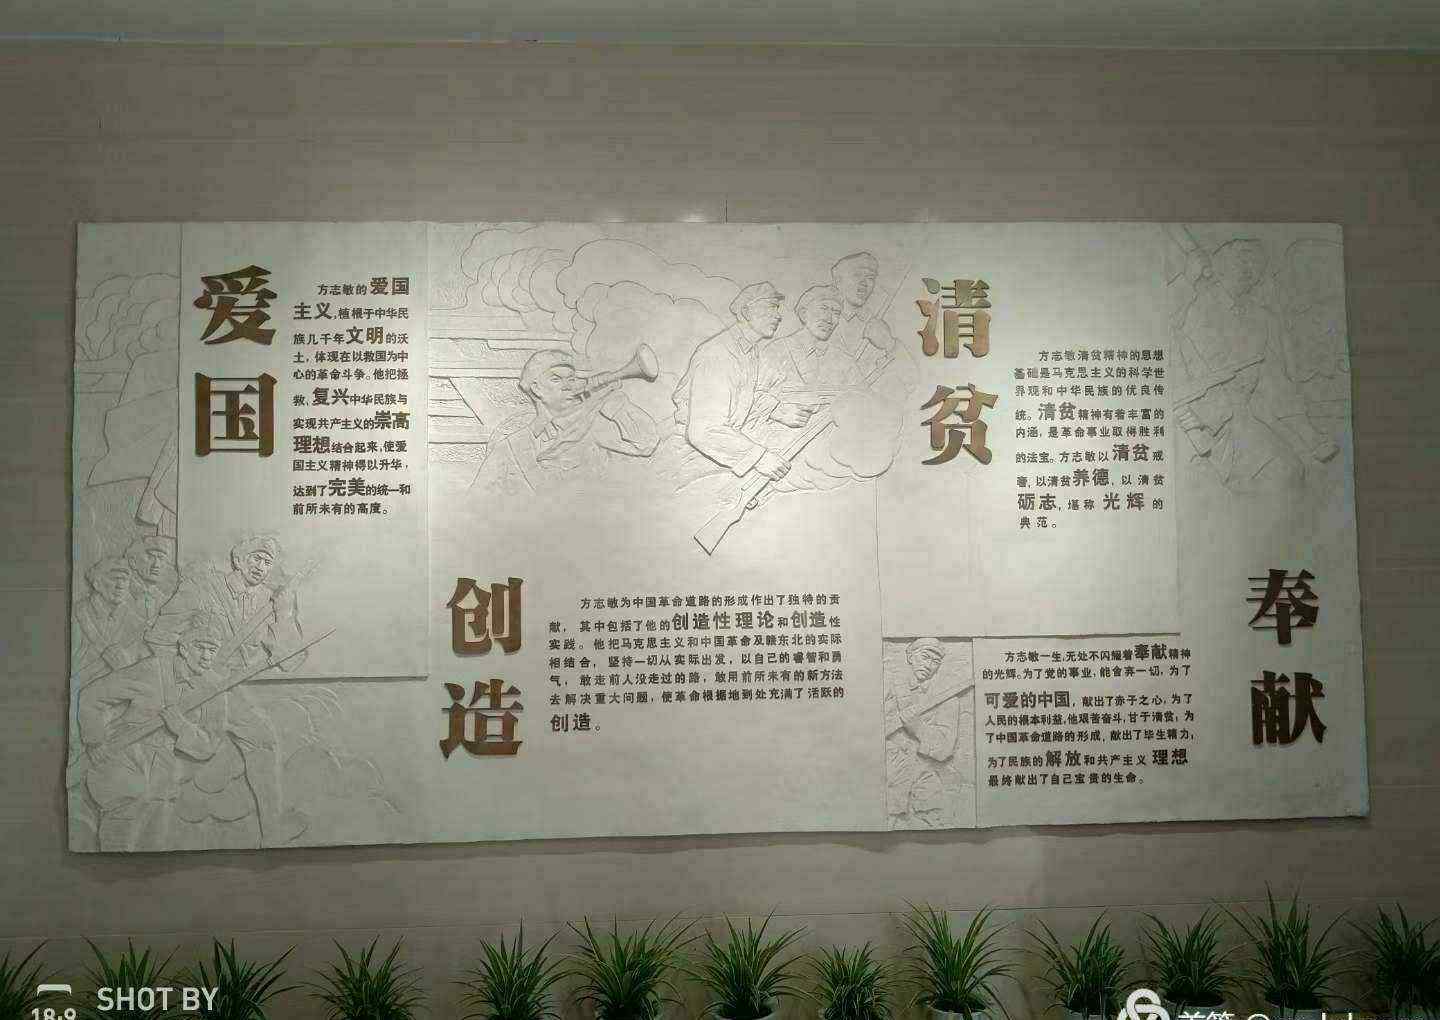 爱国
方志敏的爱国
主义,植根于中华民
族几千年文明的沃
土,体现在以救国为中
心的革命斗争。他把拯
救、复兴中华民族与
实现共产主义的崇高
理想结合起来,使爱
国主义精神得以升华,
达到了完美的统一和
前所未有的高度。
创造
方志敏为中国革命道路的形成作出了独特的贡
献，其中包括了他的创造性理论和创造性
实践。他把马克思主义和中国革命及赣东北的实际
相结合，坚持一切从实际出发，以自己的睿智和勇
气，敢走前人没走过的路，敢用前所未有的新方法
去解决重大问题，使革命根据地到处充满了活跃的
创造。
清贫
方志敏清贫精神的思想
基础是马克思主义的科学世
界观和中华民族的优良传
统。清贫精神有着丰富的
内涵，是革命事业取得胜利
的法宝。方志敏以清贫戒
奢,以清贫养德，以清贫
砺志,堪称光辉的
典范。
奉献
方志敏一生,无处不闪耀着奉献精神
的光辉。为了党的事业，能舍弃一切,为了
可爱的中国，献出了赤子之心,为了
人民的根本利益,他艰苦奋斗,甘于清贫；为
了中国革命道路的形成，献出了毕生精力；
为了民族的解放和共产主义理想
最终献出了自己宝贵的生命。
SHOT BY